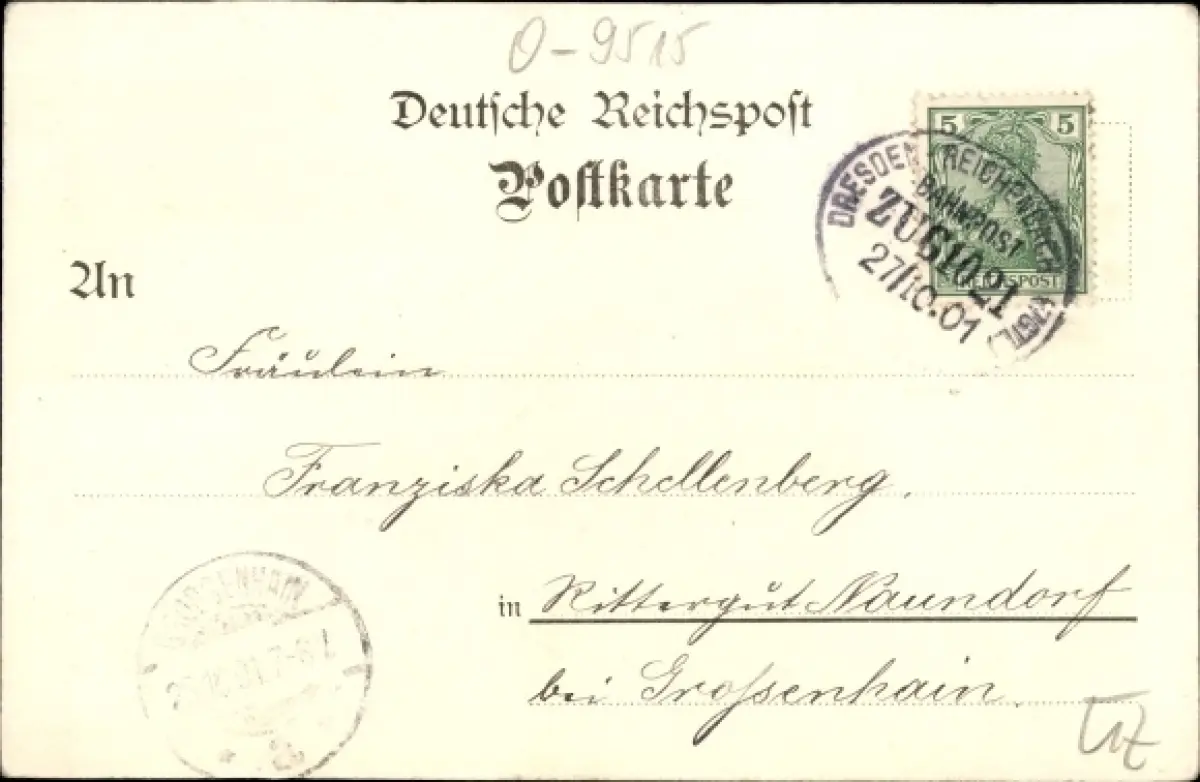 O-9515
Deutsche Reichspost
Postkarte
5 5
REICHSPOST
DRESDEN REICHENBACH
BAHNPOST
ZUG 1021
27/10.01
An
Fräulein
Franziska Schellenberg,
in Rittergut Naundorf
bei Grossenhain.
GROSSENHAIN